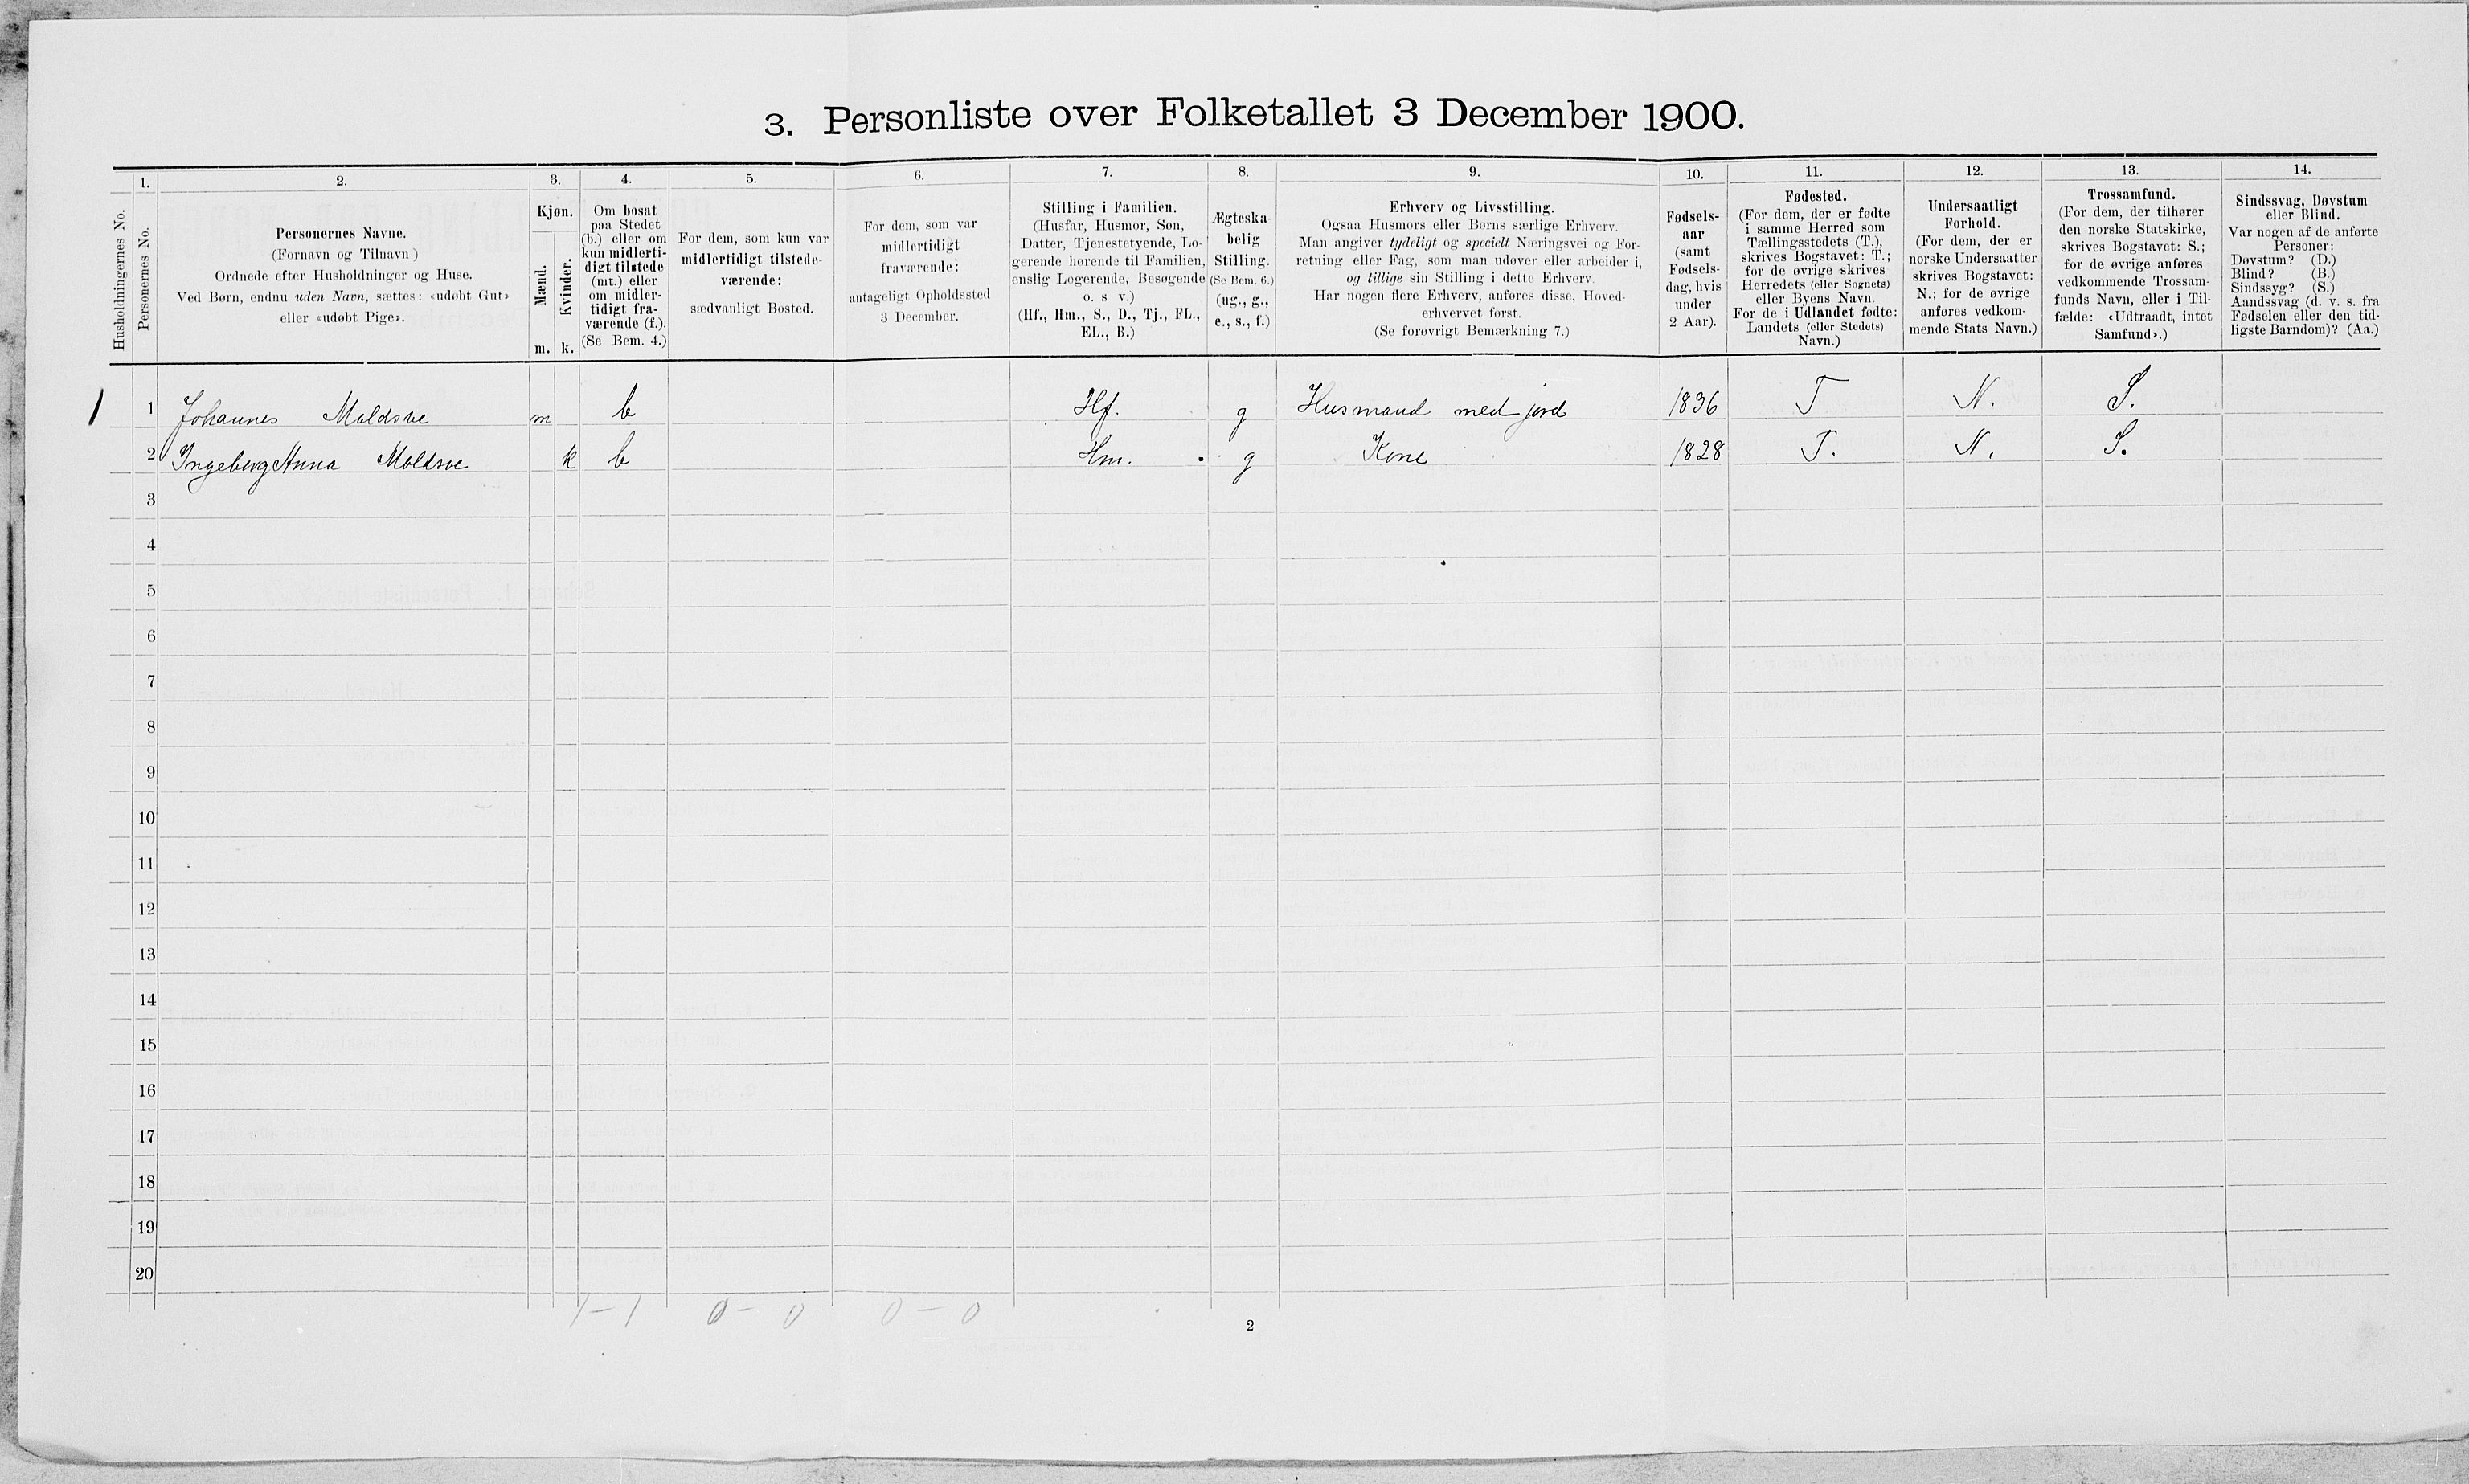 3. Personliste over Folketallet 3 December 1900.
Husholdningernes No.
1.
Personernes No.
2.
Personernes Navne.
(Fornavn og Tilnavn)
Ordnede efter Husholdninger og Huse.
Ved Børn, endnu uden Navn, sættes: «udøbt Gut»
eller «udøbt Pige».
3.
Kjøn.
Mænd.
m.
Kvinder.
k.
4.
Om bosat
paa Stedet
(b.) eller om
kun midlerti-
digt tilstede
(mt.) eller
om midler-
tidigt fra-
værende (f.).
(Se Bem. 4.)
5.
For dem, som kun var
midlertidigt tilstede-
værende:
sædvanligt Bosted.
6.
For dem, som var
midlertidigt
fraværende:
antageligt Opholdssted
3 December.
7.
Stilling i Familien.
(Husfar, Husmor, Søn,
Datter, Tjenestetyende, Lo-
gerende hørende til Familien,
enslig Logerende, Besøgende
o. s. v.)
(Hf., Hm., S., D., Tj., FL.,
EL., B.)
8.
Ægteska-
belig
Stilling.
(Se Bem. 6.)
(ug., g.,
e., s., f.)
9.
Erhverv og Livsstilling.
Ogsaa Husmors eller Børns særlige Erhverv.
Man angiver tydeligt og specielt Næringsvei og For-
retning eller Fag, som man udøver eller arbeider i,
og tillige sin Stilling i dette Erhverv.
Har nogen flere Erhverv, anføres disse, Hoved-
erhvervet først.
(Se forøvrigt Bemærkning 7.)
10.
Fødsels-
aar
(samt
Fødsels-
dag, hvis
under
2 Aar).
11.
Fødested.
(For dem, der er fødte
i samme Herred som
Tællingsstedets (T.),
skrives Bogstavet: T.;
for de øvrige skrives
Herredets (eller Sognets)
eller Byens Navn.
For de i Udlandet fødte:
Landets (eller Stedets)
Navn.)
12.
Undersaatligt
Forhold.
(For dem, der er
norske Undersaatter
skrives Bogstavet:
N.; for de øvrige
anføres vedkom-
mende Stats Navn.)
13.
Trossamfund.
(For dem, der tilhører
den norske Statskirke,
skrives Bogstavet: S.;
for de øvrige anføres
vedkommende Trossam-
funds Navn, eller i Til-
fælde: «Udtraadt, intet
Samfund».)
14.
Sindssvag, Døvstum
eller Blind.
Var nogen af de anførte
Personer:
Døvstum? (D.)
Blind? (B.)
Sindssyg? (S.)
Aandssvag (d. v. s. fra
Fødselen eller den tid-
ligste Barndom)? (Aa.)
1 1 Johannes Moldsve m b Hf. g Husmand med jord 1836 T N. S.
2 Ingeberg Anna Moldsve k b Hm. g Kone 1828 T. N. S.
3
4
5
6
7
8
9
10
11
12
13
14
15
16
17
18
19
20
1 - 1 0 - 0 0 - 0
2